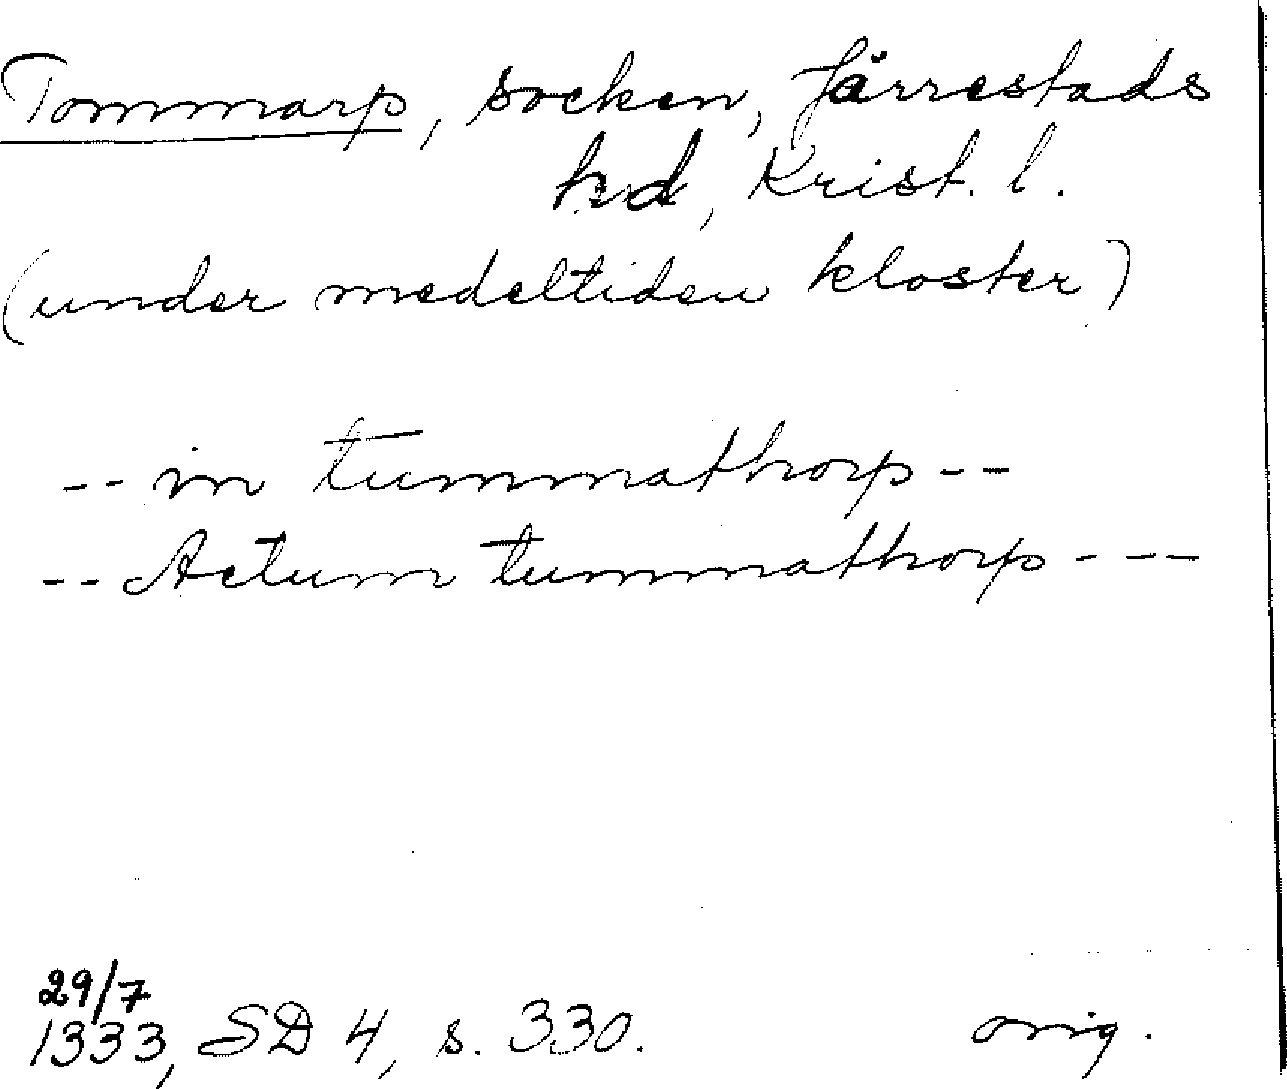 Tommarp, socken, Järrestads
hd, Krist. l.
(under medeltiden kloster)
-- in tummathorp --
-- Actum tummathorp ---
29/7
1333, SD 4, s. 330. orig.